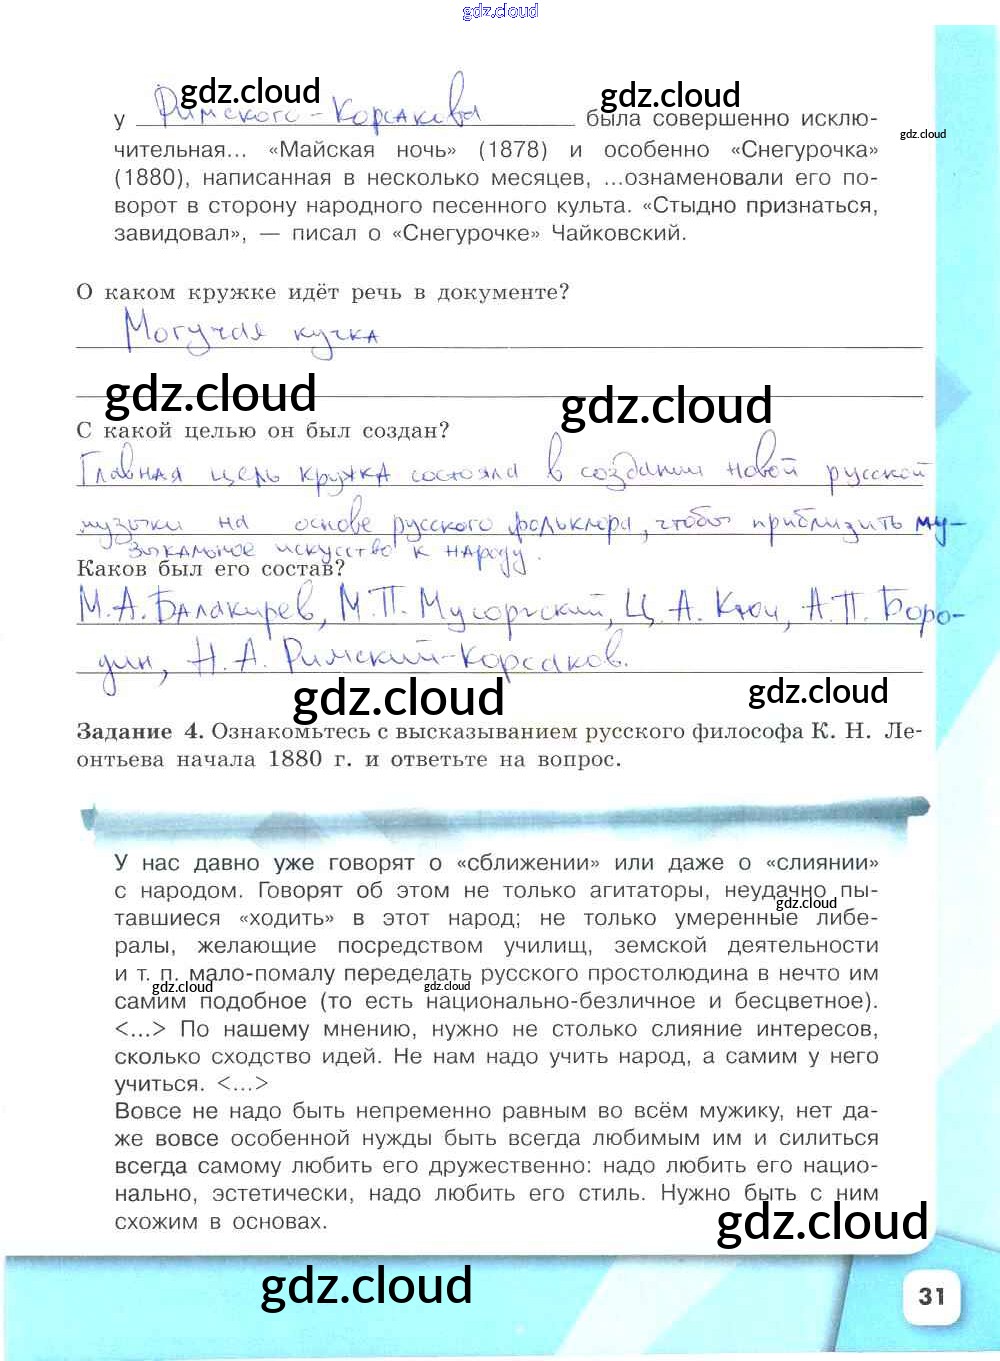 gdz.cloud
у Римского-Корсакова была совершенно исклю-
gdz.cloud gdz.cloud gdz.cloud
чительная... «Майская ночь» (1878) и особенно «Снегурочка»
(1880), написанная в несколько месяцев, ...ознаменовали его по-
ворот в сторону народного песенного культа. «Стыдно признаться,
завидовал», — писал о «Снегурочке» Чайковский.
О каком кружке идёт речь в документе?
Могучая кучка
gdz.cloud gdz.cloud
С какой целью он был создан?
Главная цель кружка состояла в создании новой русской
музыки на основе русского фольклора, чтобы приблизить му-
зыкальное искусство к народу.
Каков был его состав?
М.А.Балакирев, М.П.Мусоргский, Ц.А.Кюи, А.П.Боро-
дин, Н.А.Римский-Корсаков.
gdz.cloud gdz.cloud
Задание 4. Ознакомьтесь с высказыванием русского философа К. Н. Ле-
онтьева начала 1880 г. и ответьте на вопрос.
У нас давно уже говорят о «сближении» или даже о «слиянии»
с народом. Говорят об этом не только агитаторы, неудачно пы-
gdz.cloud
тавшиеся «ходить» в этот народ; не только умеренные либе-
ралы, желающие посредством училищ, земской деятельности
и т. п. мало-помалу переделать русского простолюдина в нечто им
gdz.cloud gdz.cloud
самим подобное (то есть национально-безличное и бесцветное).
<...> По нашему мнению, нужно не столько слияние интересов,
сколько сходство идей. Не нам надо учить народ, а самим у него
учиться. <...>
Вовсе не надо быть непременно равным во всём мужику, нет да-
же вовсе особенной нужды быть всегда любимым им и силиться
всегда самому любить его дружественно: надо любить его нацио-
нально, эстетически, надо любить его стиль. Нужно быть с ним
схожим в основах.
gdz.cloud
gdz.cloud
31